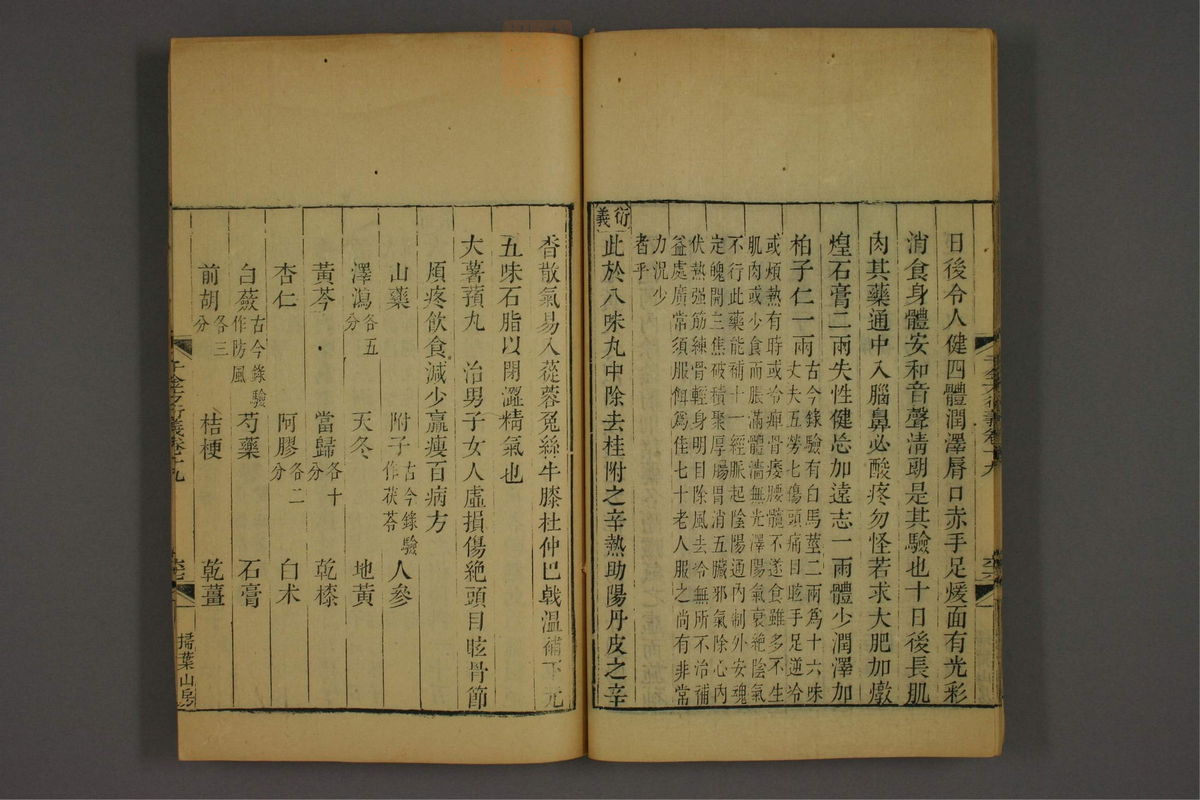 日後令人健四體潤澤脣口赤手足煖面有光彩
消食身體安和音聲清朗是其驗也十日後長肌
肉其藥通中入腦鼻必酸疼勿怪若求大肥加燉
煌石膏二兩失性健忘加遠志一兩體少潤澤加
柏子仁一兩
古今錄驗有白馬莖二兩爲十六味
丈夫五勞七傷頭痛目眩手足逆冷
或煩熱有時或令痺骨痿腰髖不遂食雖多不生
肌肉或少食而脹滿體濇無光澤陽氣衰絶陰氣
不行此藥能補十一經脈起陰陽通內制外安魂
定魄開三焦破積聚厚腸胃消五臟邪氣除心內
伏熱强筋練骨輕身明目除風去冷無所不治補
益處廣常須服餌爲佳七十老人服之尚有非常
力況少
者乎
衍義
此於八味丸中除去桂附之辛熱助陽丹皮之辛
千金方衍義卷十九
香散氣易入蓯蓉兔絲牛膝杜仲巴戟溫補下元
五味石脂以閉澀精氣也
大薯蕷丸 治男子女人虛損傷絶頭目眩骨節
煩疼飲食減少羸瘦百病方
山藥 附子 古今錄驗作茯苓 人參
澤瀉 各五分 天冬 地黃
黃芩 當歸 各十分 乾漆
杏仁 阿膠 各二分 白术
白蘞 古今錄驗作防風 芍藥 石膏
前胡 各三分 桔梗 乾薑
千金方衍義卷十九
掃葉山房